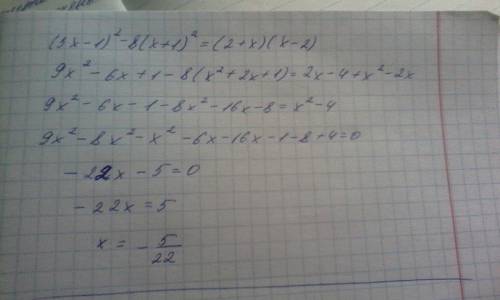 (3x-1)²-8(x+1)²=(2+x)(x-2)
9x²-6x+1-8(x²+2x+1)=2x-4+x²-2x
9x²-6x-1-8x²-16x-8=x²-4
9x²-8x²-x²-6x-16x-1-8+4=0
-22x-5=0
-22x=5
x=-5/22